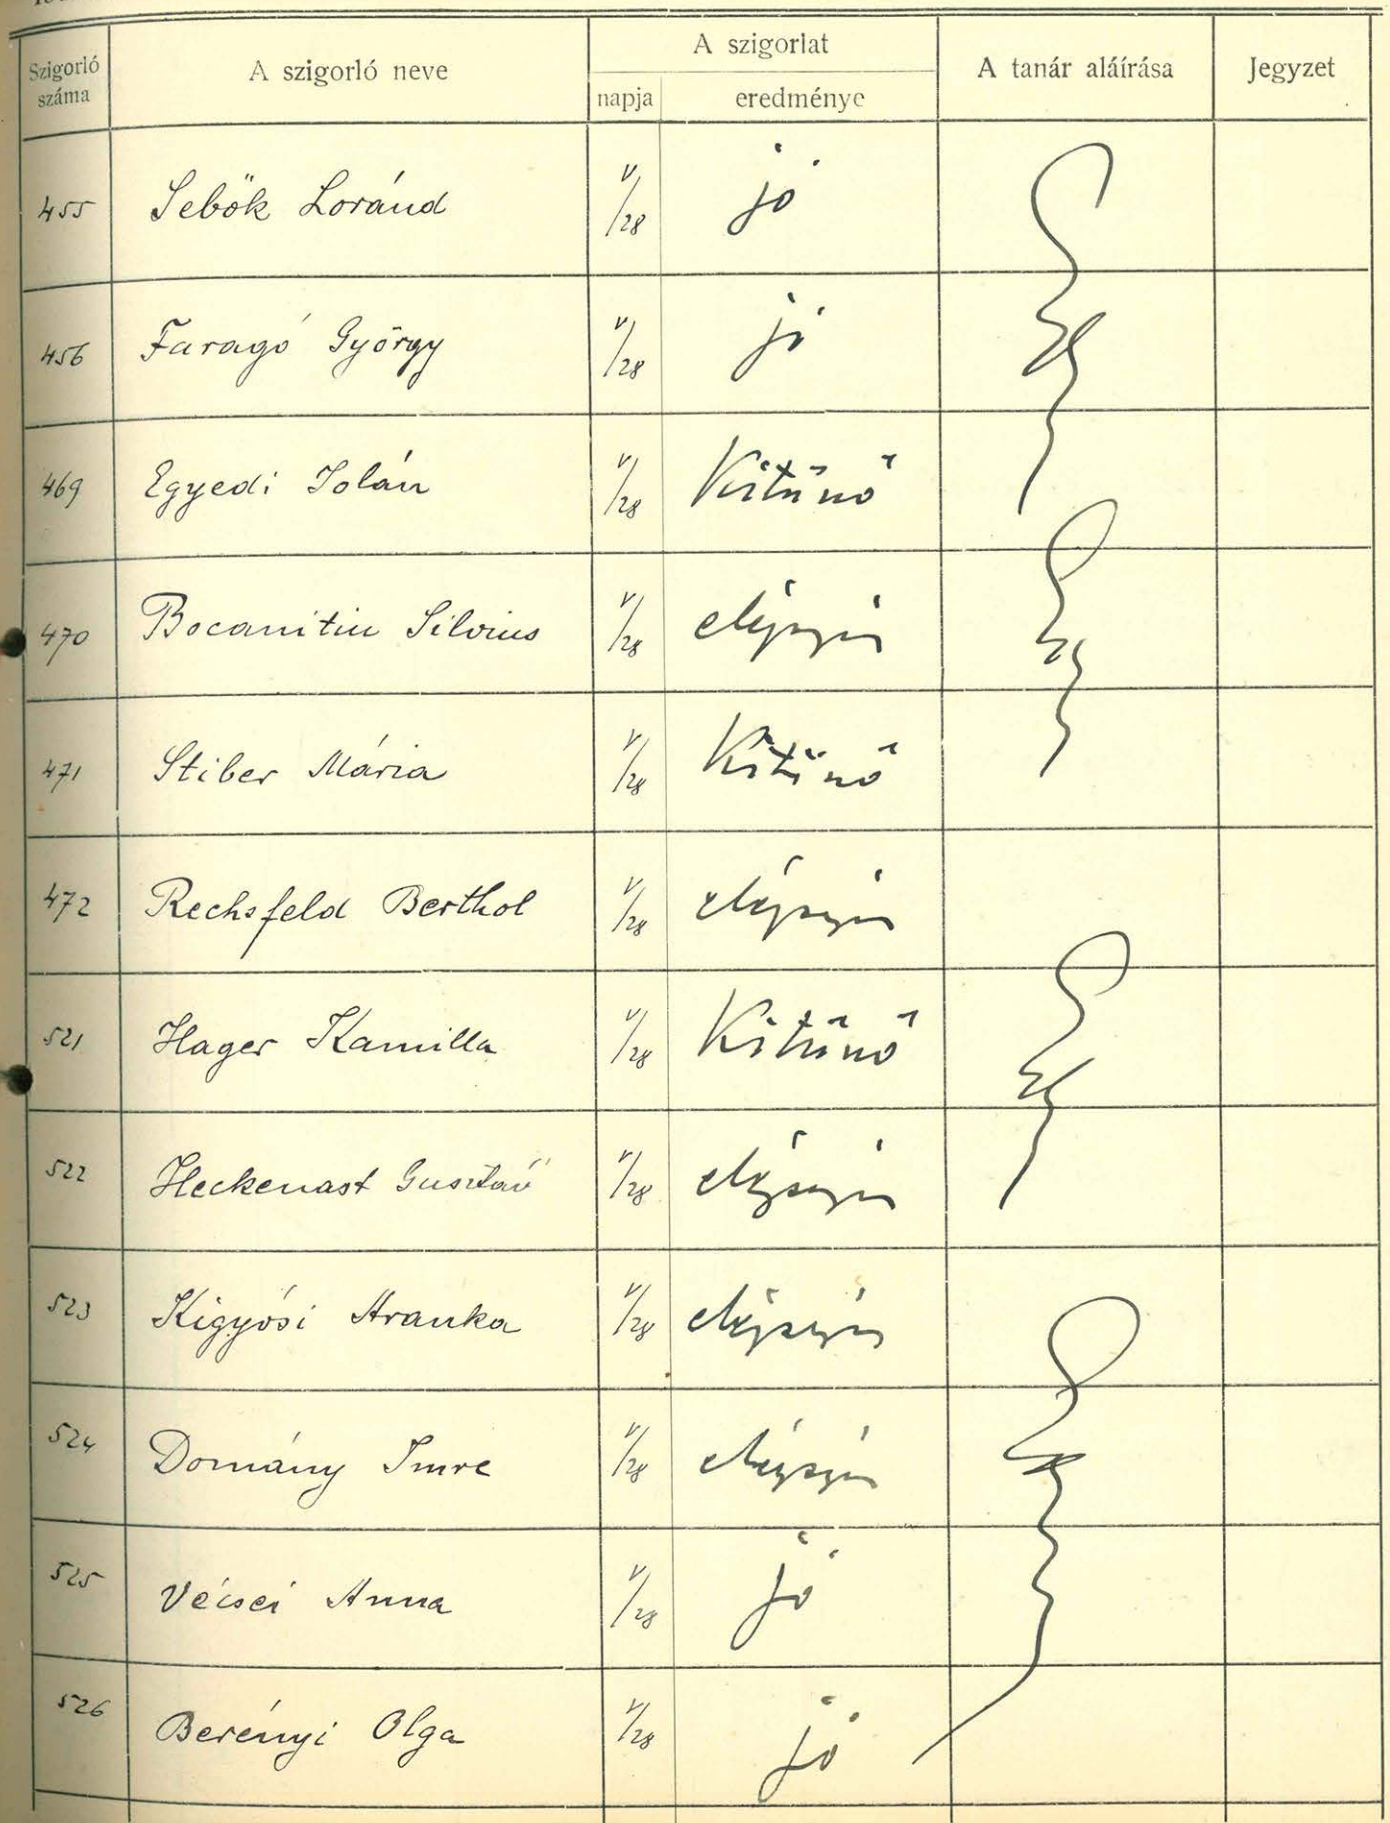 Szigorló száma A szigorló neve A szigorlat napja eredménye A tanár aláírása Jegyzet
455 Sebők Loránd V/28 jó
456 Faragó György V/28 jó
469 Egyedi Jolán V/28 Kitűnő
470 Bocanitiu Silvius V/28 elégséges
471 Stiber Mária V/28 Kitűnő
472 Rechsfeld Berthol V/28 elégséges
521 Hager Kamilla V/28 Kitűnő
522 Heckenast Gusztáv V/28 elégséges
523 Kigyósi Aranka V/28 elégséges
524 Domány Imre V/28 elégséges
525 Vécsei Anna V/28 jó
526 Berényi Olga V/28 jó